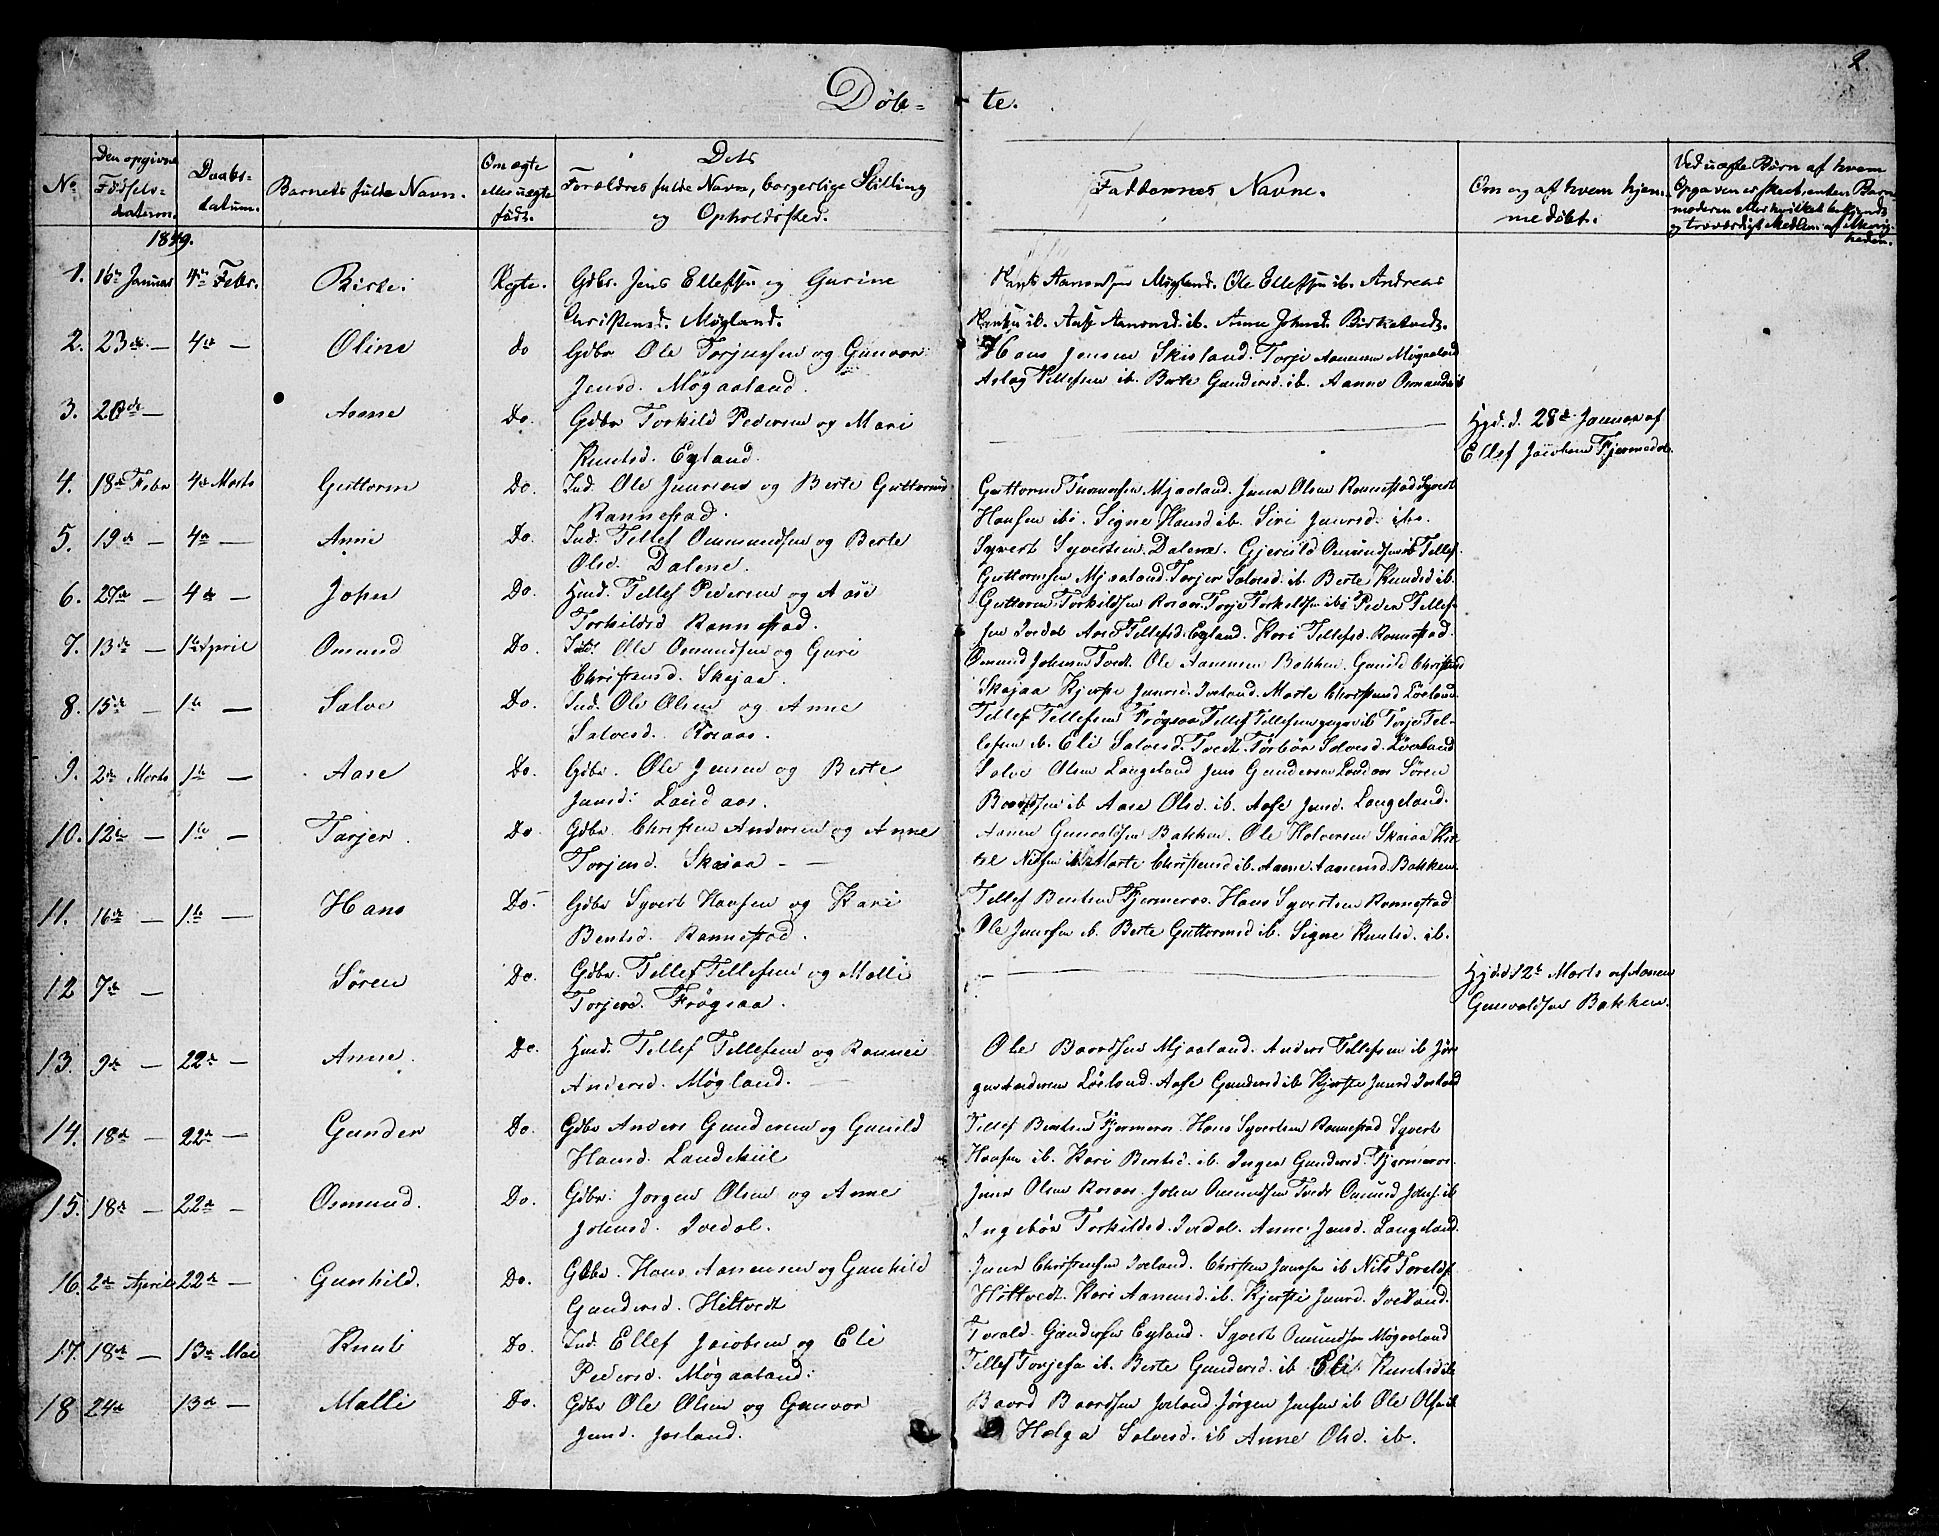 2.
Døb- te.
No
Den opgivne Fødsels-datum.
Daabs-datum.
Barnets fulde Navn.
Om ægte eller uægte født.
Dets Forældres fulde Navn, borgerlige Stilling og Opholdssted.
Faddernes Navne.
Om og af hvem hjemmedøbt.
Ved uægte Børn af hvem Opgaven er skeet, enten Barnemoderen eller hvilket bekjendt og troværdigt Medlem af Menigheden.
1849.
1. 16de Januar 4de Febr. Birte. Ægte. Gdbr. Jens Ellefsen og Gurine
Christensd. Møgland.
Aanensen Møgland. Ole Ellefsen ib. Andreas
ib. Aase Aanensd. ib. Anne Johnsd. Birketvedt.
2. 23de — 4de — Oline do Gdbr Ole Torjussen og Gunvor
Jensd. Møgaaland.
Hans Jensen Skisland. Torje Aanensen Møgaaland
Aslag Tellefsen ib. Berte Gundersd. ib. Aanne Osmundsd. ib
3. 20de — Anne Do. Gdbr Torkild Pedersen og Mari
Knutsd. Egland.
Hjd. d. 28de Januar af
Ellef Jacobsen Fjermedal.
4. 18de Febr 4de Marts Guttorm Do. Ind. Ole Jensen og Berte Guttormsd
Rannestad.
Guttorm Mjaaland. Jens Olsen Rannestad Syvert
Hansen ib. Signe Hansd ib. Siri Jensd. ib.
5. 19de — 4de — Anne Do. Ind. Tellef Ommundsen og Berte
Olsd. Dalene.
Syvert Syvertsen Dalene. Gjeruld Omundsen ib Tellef
Guttormsen Mjaaland. Torjer Salvesd. ib. Berte Knudsd ib.
6. 27de — 4de — John Do. Hmd. Tellef Pedersen og Aase
Torkildsd Rannestad.
Guttorm Torkildsen Rosaas. Torje Torkildsen ib. Peder Tellef-
sen Ivedal Aase Tellefsd. Egland. Kari Tellefsd. Rannestad.
7. 13de — 1ste April Omund Do. Ind. Ole Omundsen og Guri
Christensd. Skajaa.
Omund Johnsen Tvedt. Ole Aanensen Bakken. Gunild Christensd
Skajaa Kjerste Jensd. Iveland. Marte Christensd Løeland.
8. 15de — 1ste — Salve Do. Ind. Ole Olsen og Anne
Salvesd. Rosaas.
Tellef Tellefsen Frøgsaa. Tellef Tellefsen ib Torje Tel-
lefsen ib. Eli Salvesd. Tvedt. Torbør Salvesd. Løeland
9. 2de Marts 1ste — Aase Do. Gdbr. Ole Jensen og Berte
Jensd. Landaas.
Salve Olsen Langeland Jens Gundersen Landaas Søren
Baardsen ib Aase Olsd. ib. Aase Jensd. Langeland.
10. 12te — 1ste — Torjer. Do Gdbr Christen Andersen og Anne
Torjusd. Skajaa — —
Aanen Gunvaldsen Bakken. Ole Halvorsen Skajaa Kit-
tel Nilsen ib. Marte Christensd ib. Aanne Aanensd. Bakken.
11. 16de — 1ste — Hans Do. Gdbr Syvert Hansen og Kari
Bentsd. Rannestad.
Tellef Bentsen Fjermeros. Hans Syvertsen Rannestad
Ole Jensen ib. Berte Guttormsd ib. Signe Knutsd. ib.
12 7de — Søren Do. Gdbr. Tellef Tellefsen og Malli
Torjesd. Frøgsaa.
Hjd. d 12te Marts af Aanen
Gunvaldsen Bakken.
13. 9de — 22de — Anne. Do. Hmd. Tellef Tellefsen og Rannei
Andersd. Møgland. —
Ole Baardsen Mjaaland. Anders Tellefsen ib Jør-
gen Andersen Løeland. Aase Gundersd ib Kjerste Jensd Iveland
14. 18de — 22de — Gunder Do. Gdbr Anders Gundersen og Gunild
Hansd. Landehiil
Tellef Bentsen Fjermeros. Hans Syvertsen Rannestad Syvert
Hansen ib. Kari Bentsd. ib. Inger Gundersd. Fjermeros.
15. 18de — 22de — Osmund. Do. Gdbr. Jørgen Olsen og Anne
Johnsd. Ivedal.
Jens Olsen Rosaas. John Omundsen Tvedt Omund Johns. ib
Ingebør Torkildsd. Ivedal. Anne Jensd. Langeland.
16. 2de April 22de — Gunhild. Do. Gdbr. Hans Aanensen og Gunhild
Gundersd. Hiltvedt
Jens Christensen Iveland. Christen Jensen ib Nils Toralds.
Hiltvedt. Kari Aanensd. ib. Kjerste Jensd. Iveland.
17. 18de — 13de Mai Knut Do. Ind. Ellef Jacobsen og Eli
Pedersd. Møgaaland.
Torald Gundersen Egland. Syvert Omundsen Møgaaland
Tellef Torjesen ib. Berte Gundersd. ib Eli Knutsd. ib
18 24de 13de — Malli Do. Gdbr Ole Olsen og Gunvor
Jensd. Josland.
Baard Baardsen Iveland. Jørgen Jensen ib Ole Olsen ib
Helga Salvesd. ib Anne Olsd. ib.